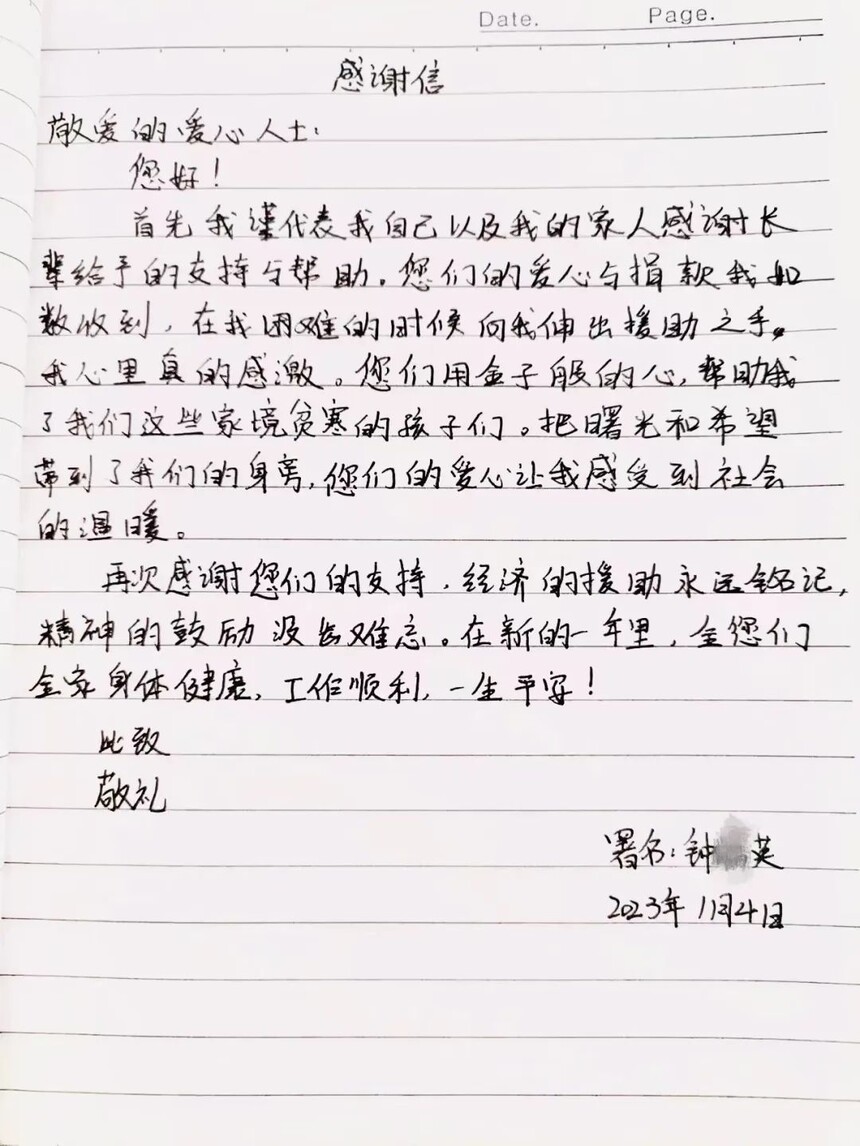 Date. Page.
感谢信
敬爱的爱心人士:
您好!
首先我谨代表我自己以及我的家人感谢长
辈给予的支持与帮助。您们的爱心与捐款我如
数收到,在我困难的时候向我伸出援助之手。
我心里真的感激。您们用金子般的心,帮助我
了我们这些家境贫寒的孩子们。把曙光和希望
带到了我们的身旁,您们的爱心让我感受到社会
的温暖。
再次感谢您们的支持,经济的援助永远铭记,
精神的鼓励没齿难忘。在新的一年里,全您们
全家身体健康,工作顺利,一生平安!
此致
敬礼
署名:钟 英
2023年11月4日